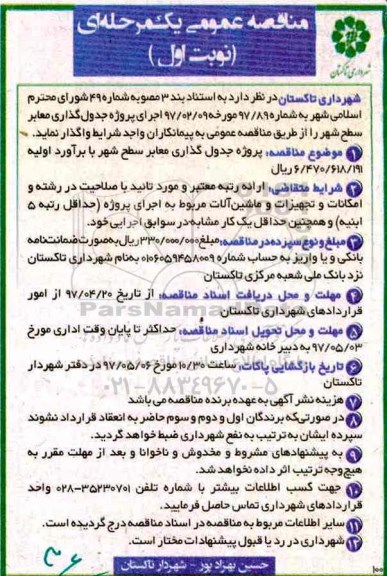 مناقصه عمومی یکمرحله‌ای
(نوبت اول)
شهرداری تاکستان
شهرداری تاکستان در نظر دارد به استناد بند ۳ مصوبه شماره ۴۹ شورای محترم
اسلامی شهر به شماره ۹۷/۸۹ مورخه ۹۷/۰۲/۰۹ اجرای پروژه جدول گذاری معابر
سطح شهر را از طریق مناقصه عمومی به پیمانکاران واجد شرایط واگذار نماید.
۱ موضوع مناقصه: پروژه جدول گذاری معابر سطح شهر با برآورد اولیه
۶/۴۷۰/۶۱۸/۱۹۱ ریال
۲ شرایط متقاضی: ارائه رتبه معتبر و مورد تائید با صلاحیت در رشته و
امکانات و تجهیزات و ماشین‌آلات مربوط به اجرای پروژه (حداقل رتبه ۵
ابنیه) و همچنین حداقل یک کار مشابه در سوابق اجرایی خود.
۳ مبلغ و نوع سپرده در مناقصه: مبلغ ۳۳۰/۰۰۰/۰۰۰ ریال به‌صورت ضمانت‌نامه
بانکی و یا واریز به حساب شماره ۰۱۰۶۰۵۹۴۵۸۰۰۹ به‌نام شهرداری تاکستان
نزد بانک ملی شعبه مرکزی تاکستان
۴ مهلت و محل دریافت اسناد مناقصه: از تاریخ ۹۷/۰۴/۲۰ از امور
قراردادهای شهرداری تاکستان
۵ مهلت و محل تحویل اسناد مناقصه: حداکثر تا پایان وقت اداری مورخ
۹۷/۰۵/۰۳ به دبیر خانه شهرداری
۶ تاریخ بازگشایی پاکات: ساعت ۱۰/۳۰ مورخ ۹۷/۰۵/۰۶ در دفتر شهردار
تاکستان
۷ هزینه نشر آگهی به عهده برنده مناقصه می باشد
۸ در صورتی‌که برندگان اول و دوم و سوم حاضر به انعقاد قرارداد نشوند
سپرده ایشان به ترتیب به نفع شهرداری ضبط خواهد گردید.
۹ به پیشنهادهای مشروط و مخدوش و ناخوانا و بعد از مهلت مقرر به
هیچ‌وجه ترتیب اثر داده نخواهد شد.
۱۰ جهت کسب اطلاعات بیشتر با شماره تلفن ۳۵۲۳۰۷۰۱-۰۲۸ واحد
قراردادهای شهرداری تماس حاصل فرمایید.
۱۱ سایر اطلاعات مربوط به مناقصه در اسناد مناقصه درج گردیده است.
۱۲ شهرداری در رد یا قبول پیشنهادات مختار است.
حسین بهزاد پور - شهردار تاکستان
ParsNamad
۰۲۱-۸۸۳۴۹۶۷۰-۵